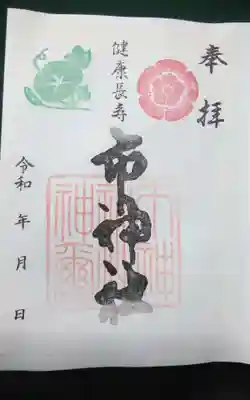 奉拝
健康長寿
市神社
令和 年 月 日